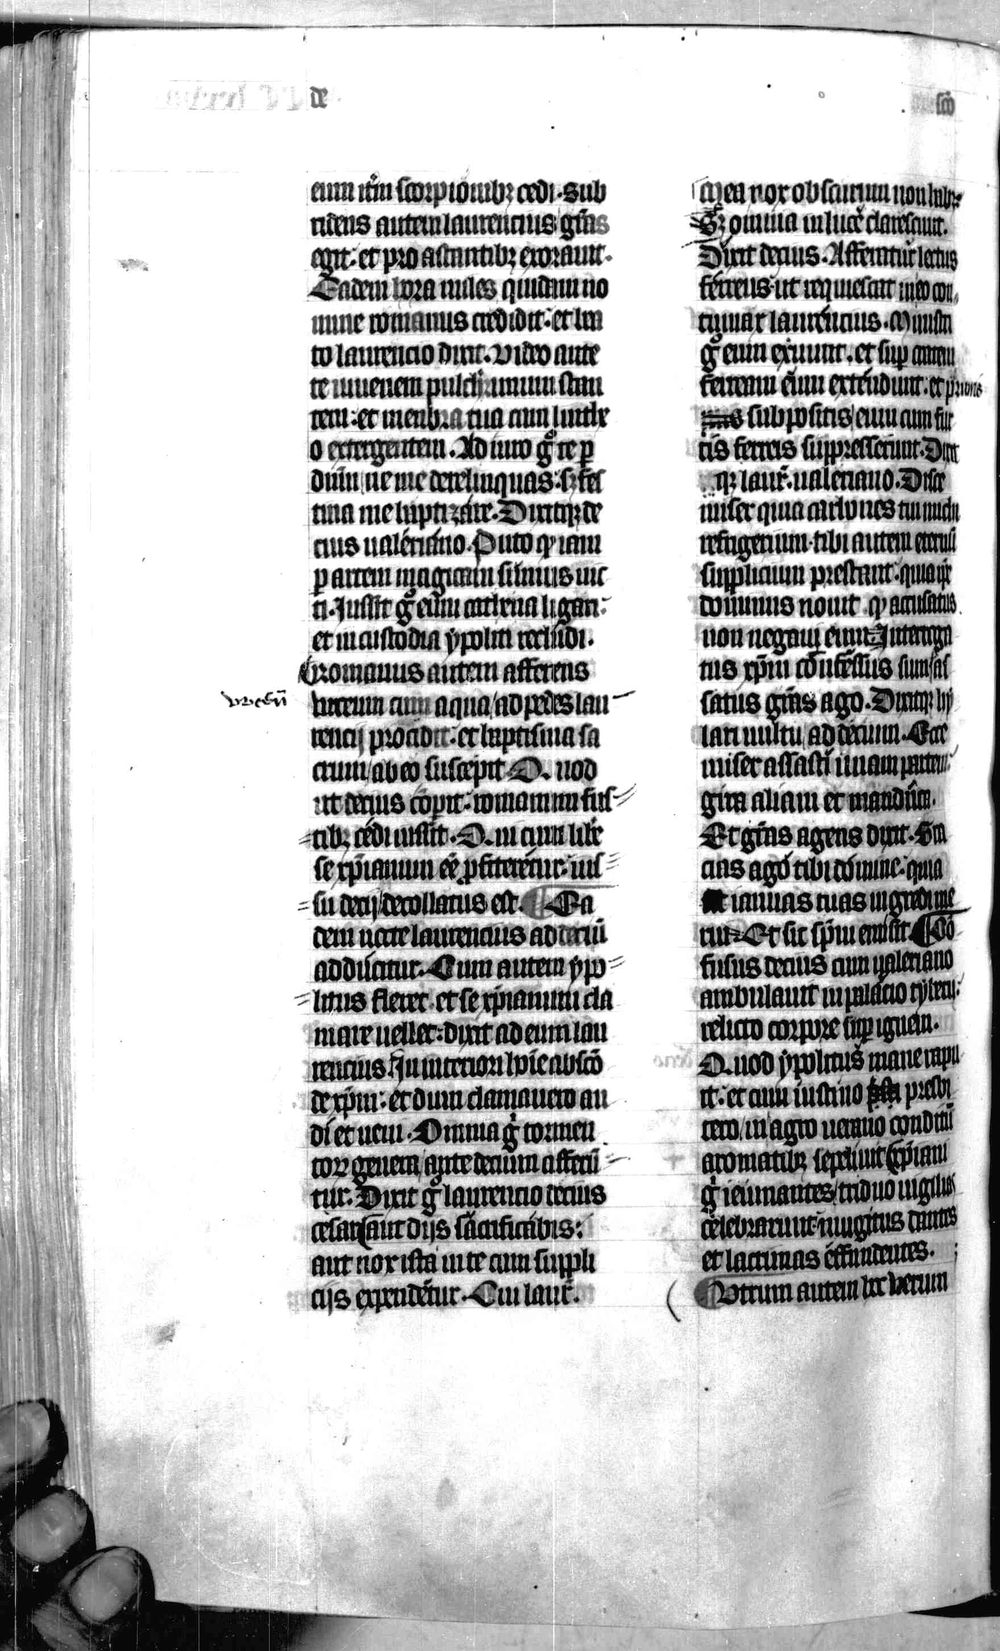 de
scō
eum itm̄ scorpionibꝫ cedi. Sub
ridens autem laurencius gr̄as
egit. et pro astantibꝫ exorauit.
Eadem hora miles quidam no
mine romanus credidit. et bea
to laurencio dixit. Video ante
te iuuenem pulcherrimum stan
tem. et menbra tua cum linthe
o extergentem. Adiuro gͦ te per
dūm ne me derelinquas. sꝫ fes
tina me baptizare. Dixitqꝫ de
cius ualeriano. Puto qꝫ iam
per artem magicam simus uic
ti. Jussit gͦ eum cathena ligari
et in custodia ypoliti recludi.
Romanus autem afferens
vrceū
urceum cum aqua ad pedes lau
rencij procidit. et baptisma sa
crum ab eo suscepit. Quod
ut decius cōpit. romanum fus
tibꝫ cedi iussit. Qui cum libe
se xp̄ianum eē ꝓfiteretur. ius
su decij decollatus est. Ea
dem nocte laurencius ad deciū
adducitur. Cum autem ypo
litus fleret. et se xp̄ianum cla
mare uellet. dixit ad eum lau
rencius. In interiori hoīe abscō
de xp̄m. et dum clamauero au
di et ueni. Omnia gͦ tormen
torꝝ genera ante decium afferū
tur. Dixit gͦ laurencio decius
cesar. aut dijs sacrificabis.
aut nox ista in te cum suppli
cijs expendetur. Cui laur̄.
Mea nox obscurum non habet
Sꝫ omnia in luce clarescunt.
Dixit decius. Afferatur lectus
ferreus. ut requiescat in eo con
tumax laurencius. Ministri
gͦ eum exuunt. et sup cratem
ferream eum extendunt. et prunis
subpositis eum cum fur
cis ferreis suppresserunt. Dixit
qꝫ laur̄. ualeriano. Disce
miser quia carbones tui michi
refrigerium. tibi autem eternū
supplicium prestant. quia ipse
dominus nouit qꝫ accusatus
non negaui eum. Interroga
tus xp̄m confessus sum. as
satus gr̄as ago. Dixitqꝫ hy
lari uultu ad decium. Ecce
miser assasti unam partem.
gira aliam et manduca.
Et gr̄as agens dixit. Gra
cias ago tibi domine. quia
ianuas tuas ingredi me
rui. Et sic sp̄m emisit. Cō
fusus decius cum ualeriano
ambulauit in palacio tyberij
relicto corpore sup ignem.
Quod ypolitus mane rapu
it. et cum iustino presbi
tero. in agro uerano conditū
aromatibꝫ sepeliuit. xp̄iani
gͦ ieiunantes triduo uigilias
celebrarunt. mugitus dantes
et lacrimas effundentes.
Utrum autem hec uerum